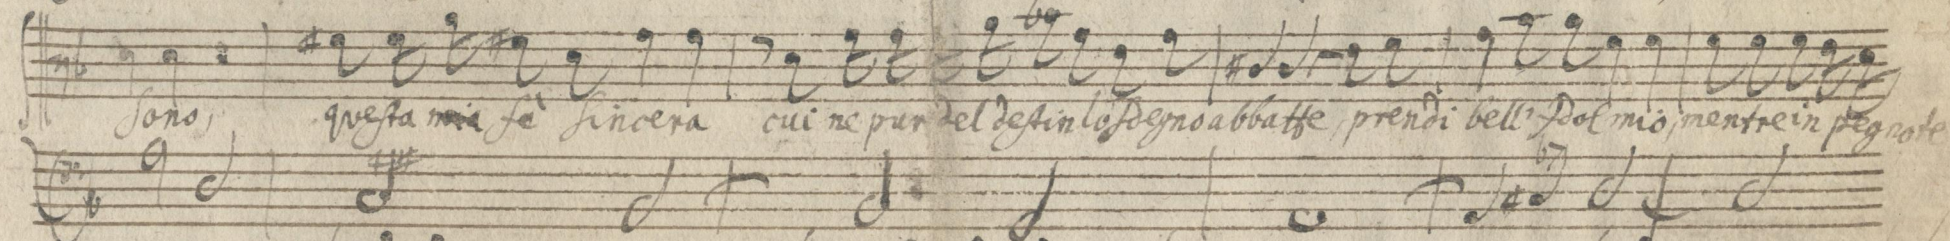 sono, questa mia fè sincera cui ne pur del destin lo sdegno abbatte, prendi bell' Idol mio, mentre in pegno te